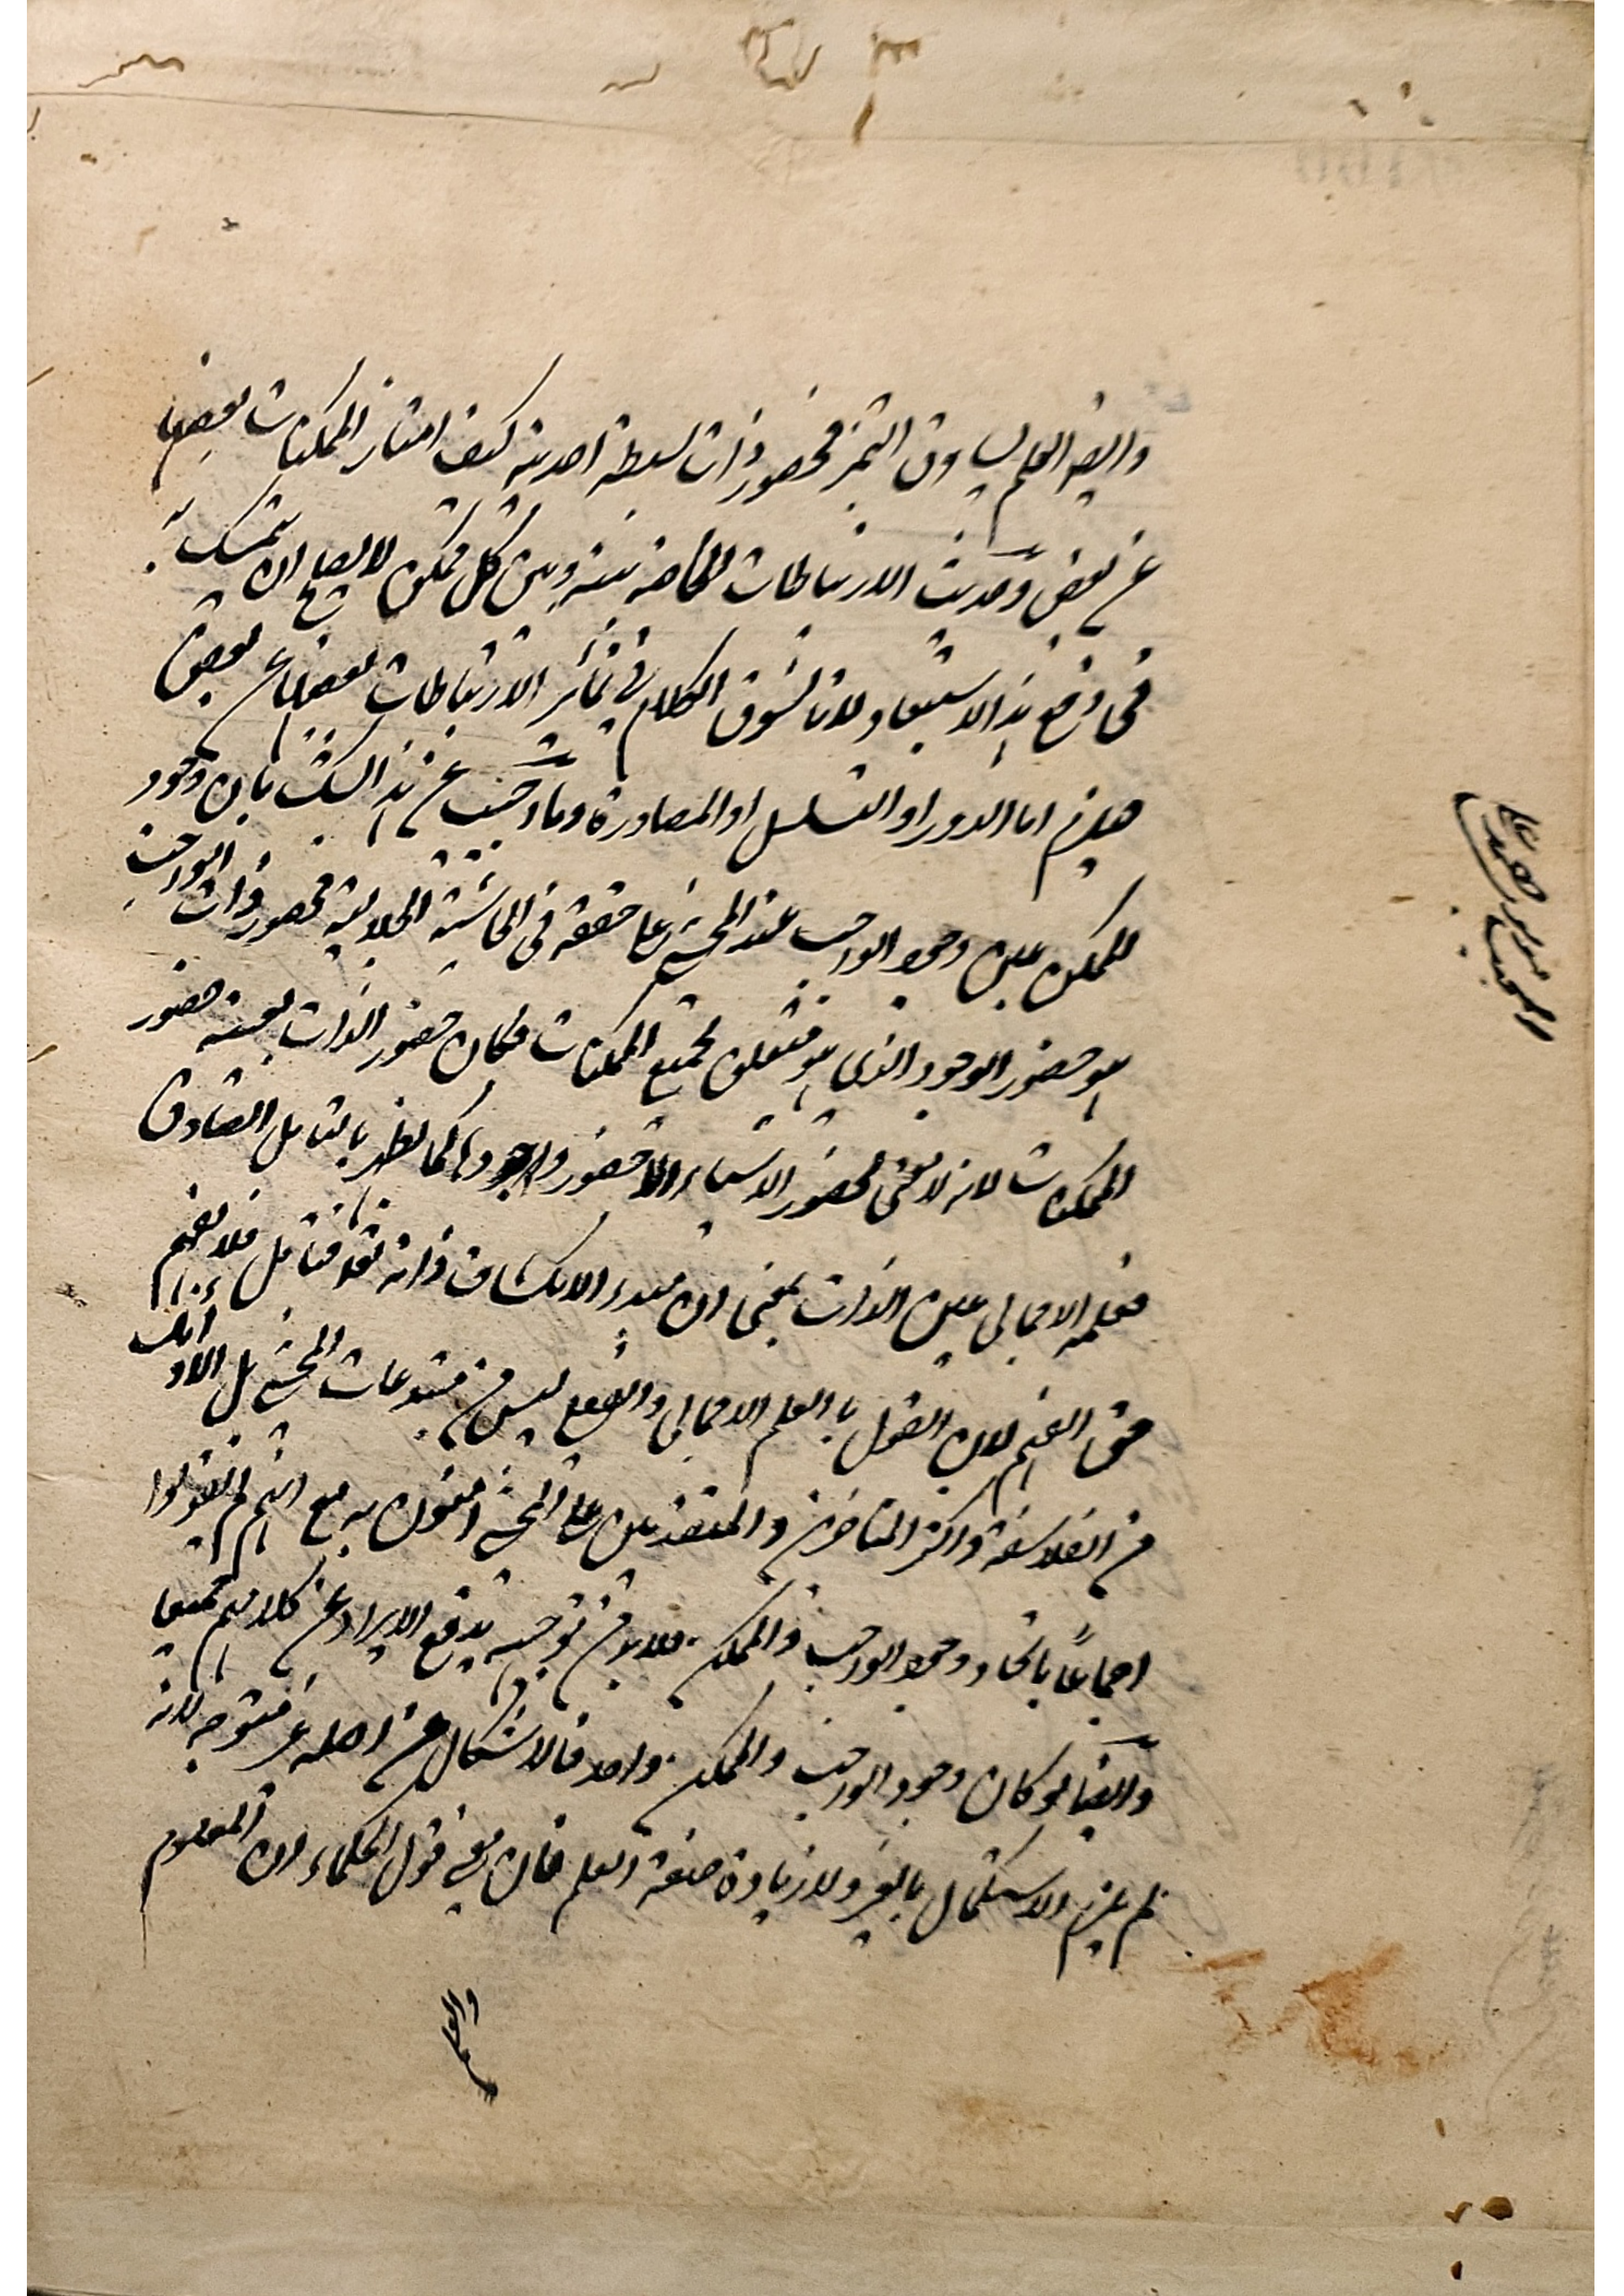 وايضا العلم يساوق التميز فحضور ذات بسيطة احدية كيف امتياز الممكنات بعضها
عن بعض وحديث الارتباطات الخاصة بينه وبين كل ممكن لا يصلح ان يتمسك به
فى دفع هذا الاستبعاد لانا نسوق الكلام فى تمائز الارتباطات بعضها عن بعض
فيلزم اما الدور او التسلسل او المصادرة وما اجيب عن هذا الشك بان وجود
الممكن عين وجود الواجب عند المحشى على ما حققه فى الحاشية الجلالية فحضور ذات الواجب
هو حضور الوجود الذى هو متعلق لجميع الممكنات فكان حضور الذات بعينه حضور
الممكنات لانه لا معنى لحضور الاشياء الا حضور وجودها كما يظهر بالتامل الصادق
فعلمه الاجمالى عين الذات بمعنى ان مبدء الانكشاف ذاته تعا فتامل فلا يفهم
حق الفهم لان القول بالعلم الاجمالى والفعلى ليس من مبتدعات المحشى بل الاوائل
من الفلاسفة واكثر المتاخرين والمتقدمين على المحشى متفقون به مع انهم لم يقولوا
اجماعًا باتحاد وجود الواجب والممكن فلا بد من توجيه يدفع الايراد عن كلامهم جميعا
وايضًا لو كان وجود الواجب والممكن واحد فالاشكال من اصله غير متوجه لانه
لم يلزم الاستكمال بالغير ولا زيادة صفة العلم فان معنى قول الحكماء ان المعلوم